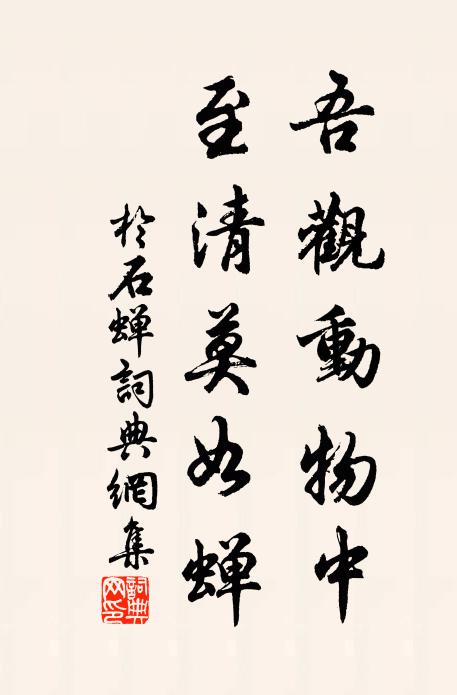 吾觀動物中
至清莫如蝉
於石蝉詞典網集
詞典網印